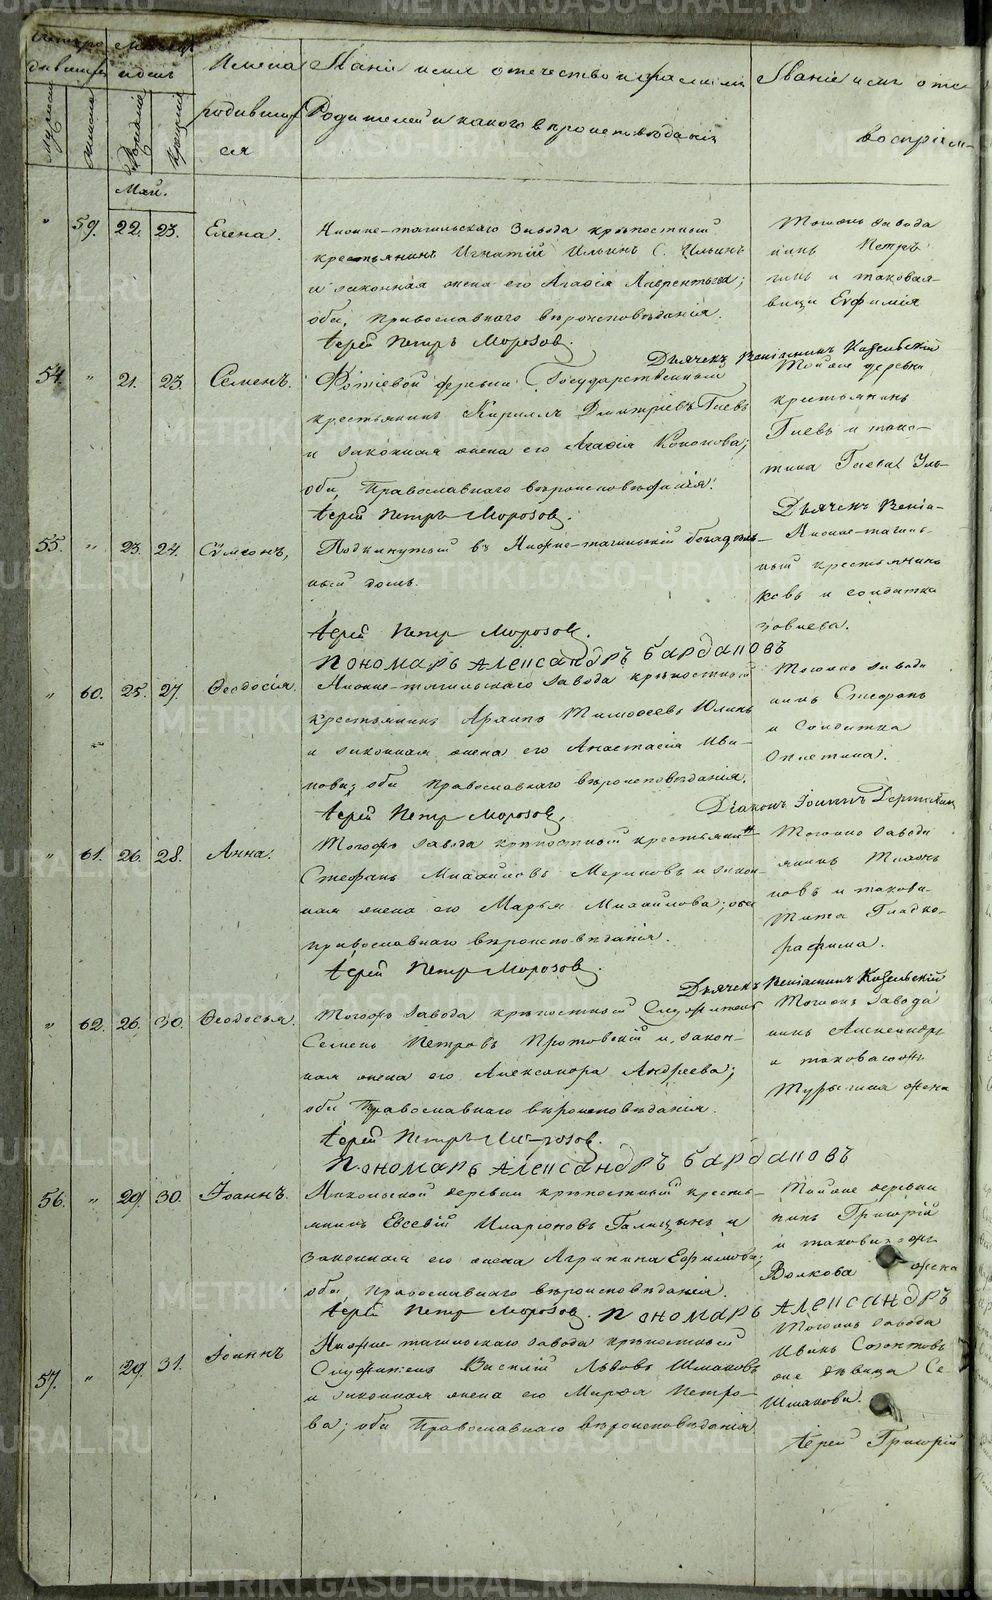 METRIKI.GASU-URAL.RU
Счетъ родившихся Мѣсяцъ и день
Имена родившихся
Званіе имя отечество и фамилія Родителей и какого вѣроисповѣданія
Званіе имя оте
воспріем-
мужеска
женска
рожденія
крещенія
Май.
" 59. 22. 23. Елена.
Нижне-тагильскаго завода крѣпостный
крестьянинъ Игнатій Ильинъ С. Ильинъ
и законная жена его Агафія Лаврентьева;
оба, Православнаго вѣроисповѣданія.
Іерей Петръ Морозовъ.
Тогожъ завода
нинъ Петръ
гинъ и таковая-
вица Евфимія
Дьячекъ Веніаминъ Козельскій
54. " 21. 23. Семенъ.
Фотіевой деревни Государственный
крестьянинъ Кириллъ Дмитріевъ Гаевъ
и законная жена его Агафія Кононова;
оба, Православнаго вѣроисповѣданія.
Іерей Петръ Морозовъ.
Тойже деревни
крестьянинъ
Гаевъ и тако-
тина Гаева Уль-
Дьячекъ Веніа-
55. " 23. 24. Сѵмеонъ,
Подкинутый въ Нижне-тагильскій богадѣль-
ный домъ.
Іерей Петръ Морозовъ.
Пономарь Александръ Бардановъ
Нижне-тагиль-
ный крестьянинъ
ковъ и солдатка
завнева.
" 60. 25. 27. Ѳеодосія.
Нижне-тагильскаго завода крѣпостный
крестьянинъ Архипъ Тимофеевъ Юлинъ
и законная жена его Анастасія Ива-
нова; оба Православнаго вѣроисповѣданія.
Іерей Петръ Морозовъ.
Тогоже завода
нинъ Стефанъ
и Солдатка
Діаконъ Іоаннъ
" 61. 26. 28. Анна.
Тогожъ завода крѣпостный крестьянинъ
Стефанъ Михайловъ Мериновъ и закон-
ная жена его Марья Михайлова; оба
православнаго вѣроисповѣданія.
Іерей Петръ Морозовъ.
Тогоже завода
янинъ Тихонъ
повъ и такова-
Тита Гладко-
рафима.
Дьячекъ Веніаминъ Козельскій
" 62. 26. 30. Ѳеодосья.
Тогожъ завода крѣпостный Служитель
Семенъ Петровъ Протовскій и закон-
ная жена его Александра Андреева;
оба Православнаго вѣроисповѣданія.
Іерей Петръ Морозовъ.
Пономарь Александръ Бардановъ
Тогожъ завода
нинъ Александръ
и таковагожъ
Турыгина жена
56. " 29. 30. Іоаннъ.
Никольской деревни крѣпостный кресть-
янинъ Евсевій Иларіоновъ Галицынъ и
законная его жена Агрипина Ефимова;
оба, Православнаго вѣроисповѣданія.
Іерей Петръ Морозовъ. Пономарь Александръ
Тойже деревни
нинъ Григорій
и таковагожъ
Волкова жена
57. " 29. 31. Іоаннъ
Нижне-тагильскаго завода крѣпостный
Служитель Василій Львовъ Шмаковъ
и законная жена его Марѳа Петро-
ва; оба Православнаго вѣроисповѣданія
Тогожъ завода
Иванъ Созонтовъ
оже дѣвица Се
Шмакова.
Іерей Григорій